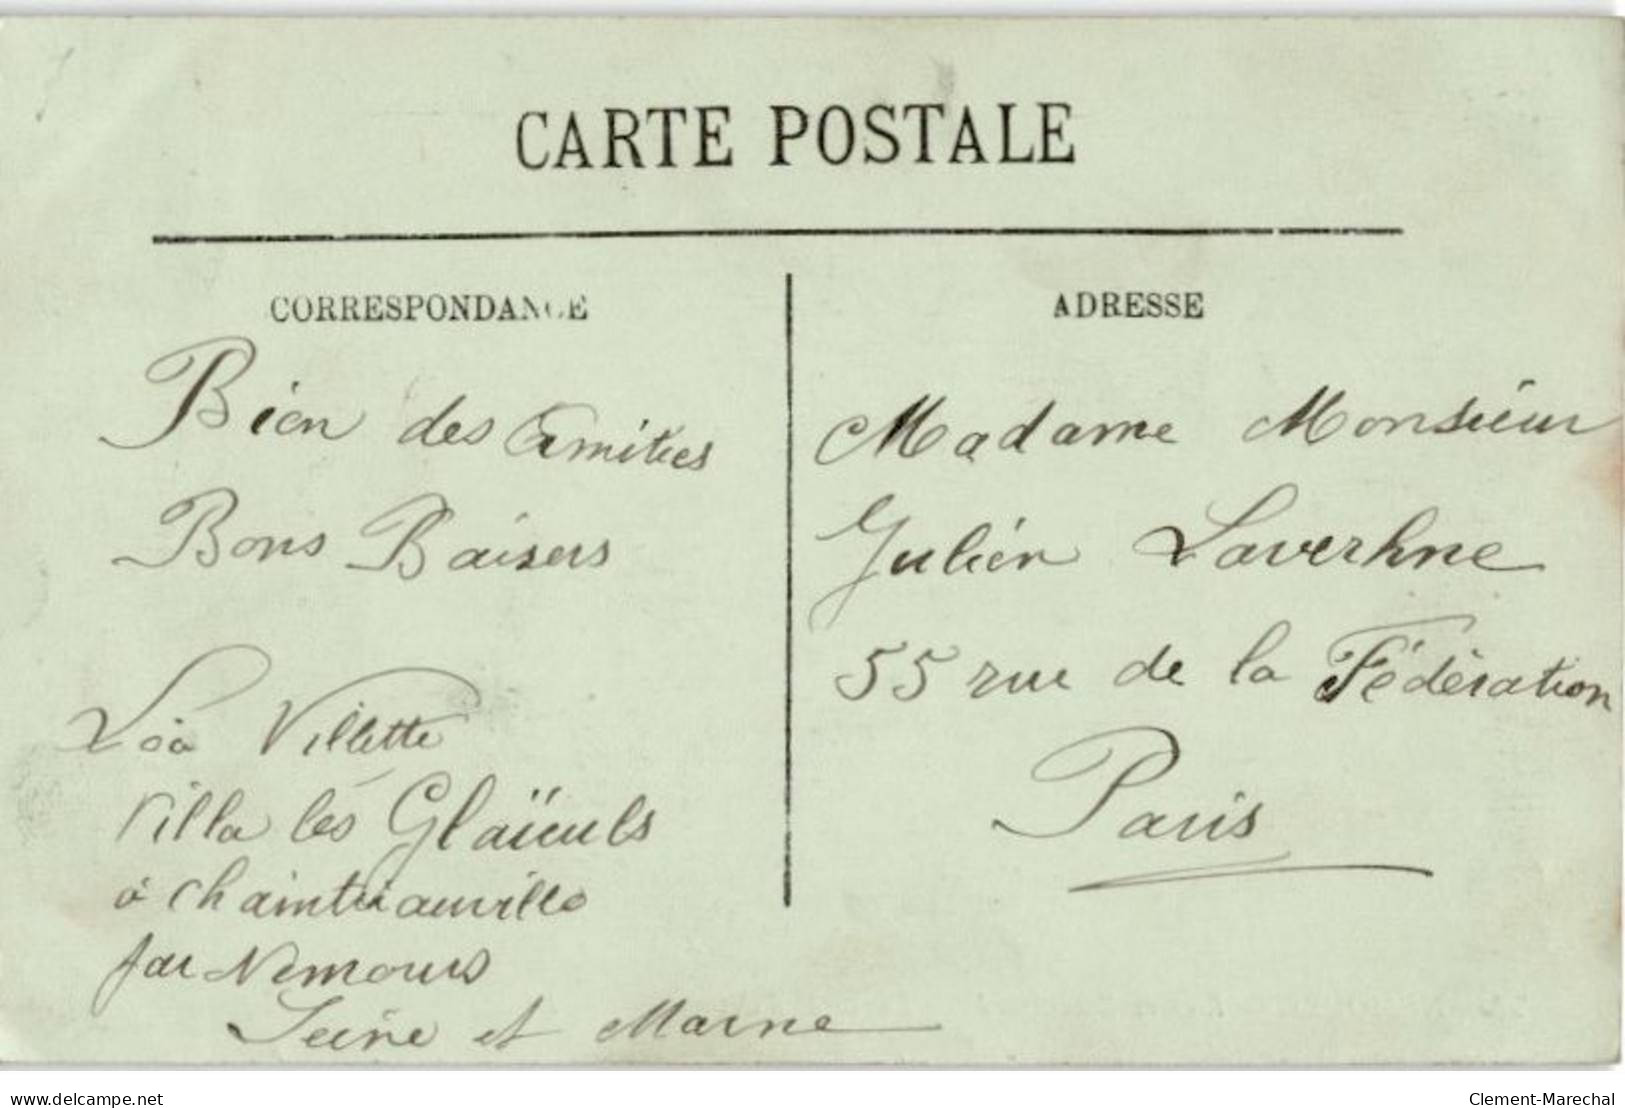 CARTE POSTALE
CORRESPONDANCE
Bien des Amities
Bons Baisers
Léa Villette
Villa les Glaïeuls
à Chaintreauville
par Nemours
Seine et Marne
ADRESSE
Madame Monsieur
Julien Laverhne
55 rue de la Fédération
Paris
delcampe.net
Clement-Marechal